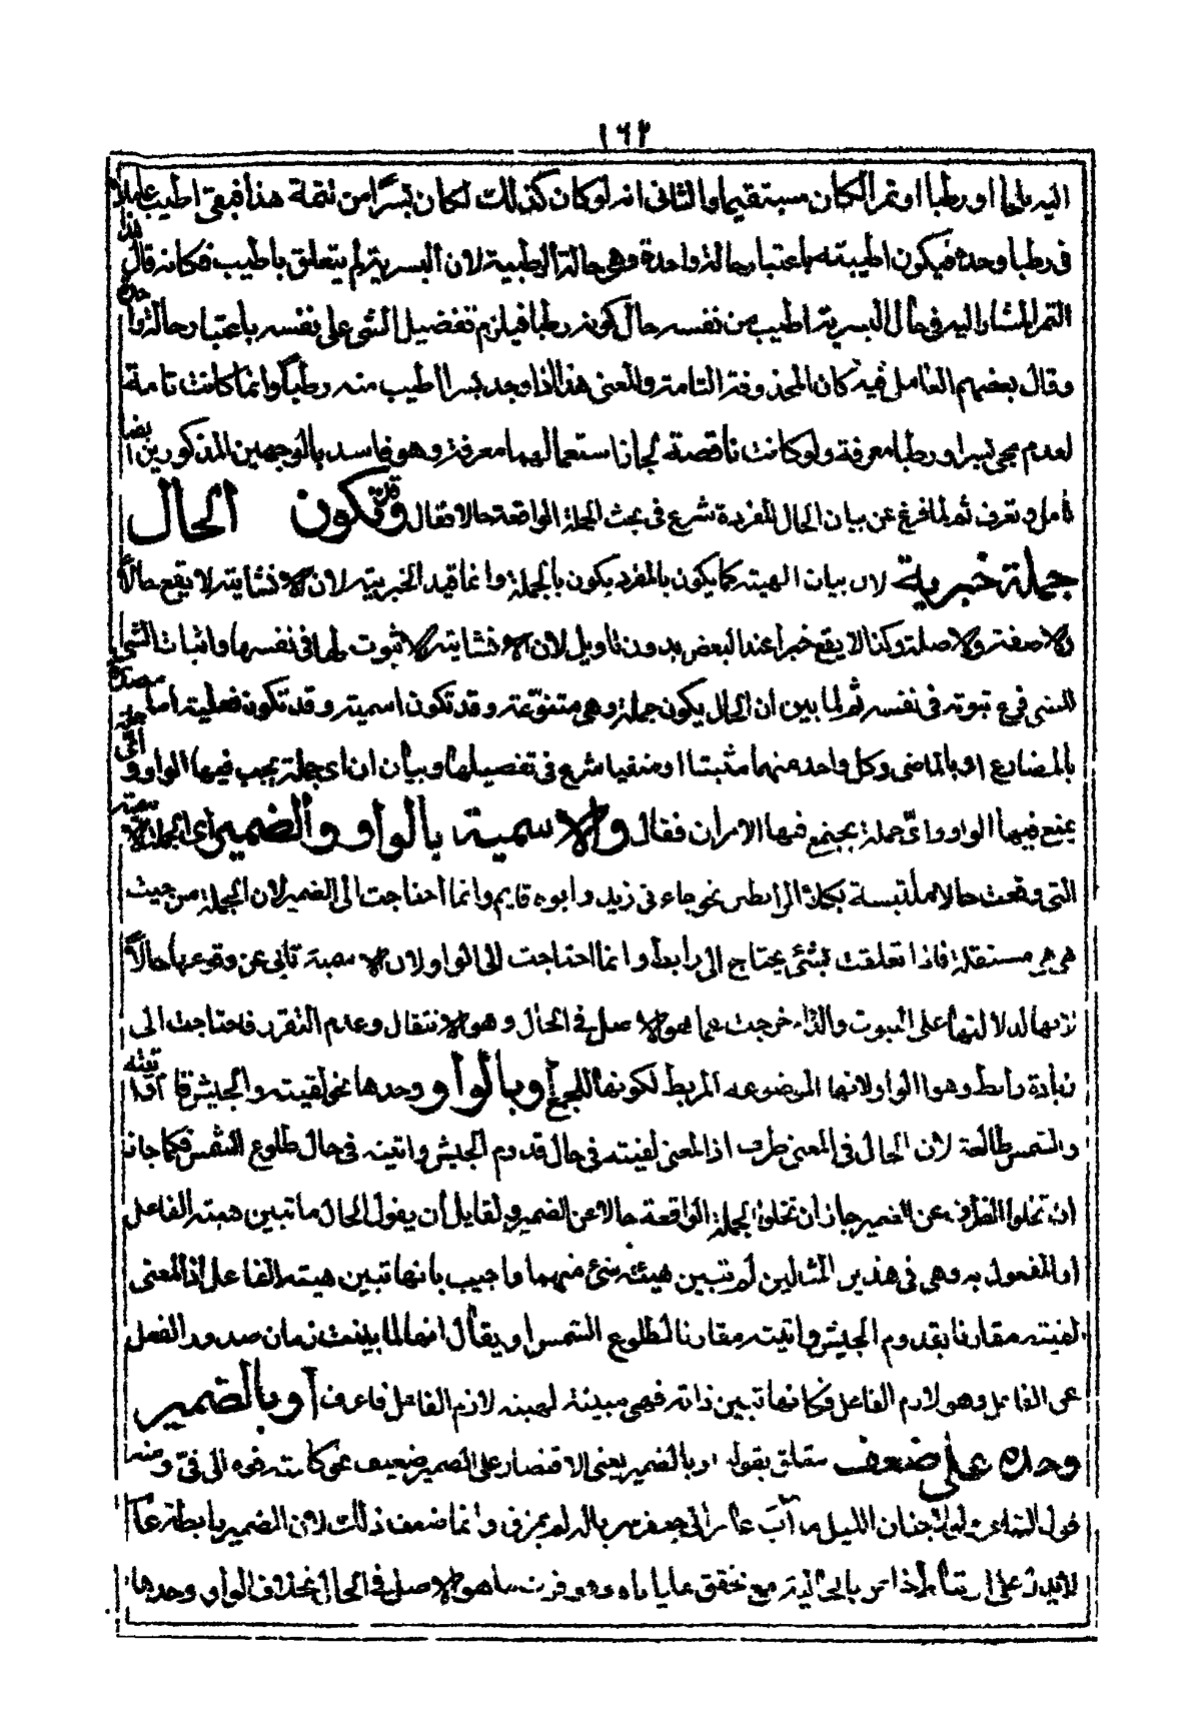 ١٦٢
اليه بلحا او رطبا او تمرا لكان مستقيما والثاني انه لو كان كذلك لكان بسرًا من تتمة هذا فبقى اطيب عاملا
في رطبا وحده فيكون اطيبيته باعتبار حالة واحدة وهي حالة الرطبية لان البسرية لم يتعلق باطيب فكانه قال هذا
التمر المشار اليه في حال البسرية اطيب من نفسه حال كونه رطبا فيلزم تفضيل الشئ على نفسه باعتبار حالة واحدة
وقال بعضهم العامل فيه كان المحذوفة التامة والمعنى هذا اذا وجد بسرا اطيب منه رطبًا وانما كانت تامة
لعدم مجئ بسرا ورطبا معرفة ولو كانت ناقصة لجاز استعمالهما معرفة وهو فاسد بالوجهين المذكورين ايضا
تامل وتعرف ثم لما فرغ عن بيان الحال المفردة شرع في بحث الجملة الواقعة حالا فقال وقد تكون الحال
جملة خبرية لان بيان الهيئة كما يكون بالمفرد يكون بالجملة وانما قيد الخبرية لان الانشائية لا يقع حالًا
ولا صفة ولا صلة وكذا لا يقع خبرا عند البعض بدون تاويل لان الانشائية لا ثبوت لها في نفسها واثبات الشئ
للشئ فرع ثبوته في نفسه ثم لما بين ان الحال يكون جملة وهي متنوّعة وقد تكون اسمية وقد تكون فعلية اما مصدرة
بالمضارع او بالماضي وكل واحد منهما مثبتا او منفيا شرع في تفصيلها وبيان ان اى جملة يجب فيها الواو واىّ جملة
يمنع فيها الواو واىّ جملة يجتمع فيها الامران فقال والاسمية بالواو والضمير اى الجملة الاسمية
التي وقعت حالا ملتبسة بكلا الرابطين نحو جاءني زيد وابوه قايم وانما احتاجت الى الضمير لان الجملة من حيث
هي هي مستقلة فاذا تعلقت بشئ يحتاج الى رابط وانما احتاجت الى الواو لان الاسمية تابى عن وقوعها حالًا
لانها لدلالتها على الثبوت والدوام خرجت عما هو الاصل في الحال وهو الانتقال وعدم التقرر فاحتاجت الى
زيادة رابط وهو الواو لانها الموضوعة للربط لكونها للجمع او بالواو وحدها نحو لقيته والجيش قادم واتيته
والشمس طالعة لان الحال في المعنى ظرف اذ المعنى لقيته في حال قدوم الجيش واتيته في حال طلوع الشمس فكما جاز
ان تخلوا الظرف عن الضمير جاز ان تخلوا الجملة الواقعة حالا عن الضمير ولقايل ان يقول الحال ما تبين هيئة الفاعل
او المفعول به وهي في هذين المثالين لم تبين هيئة شئ منهما واجيب بانها تبين هيئة الفاعل اذ المعنى
لقيته مقارنا بقدوم الجيش واتيته مقارنا لطلوع الشمس او يقال انها لما بينت زمان صدور الفعل
عن الفاعل وهو لازم الفاعل فكانها تبين ذاته فهي مبينة لهيئة لازم الفاعل فاعرف او بالضمير
وحده على ضعف متعلق بقوله او بالضمير يعنى الاقتصار على الضمير ضعيف نحو كلمته فوه الى فيّ ومنه
قول الشاعر لولا جنان الليل ما آبَ عامر الى جعفر سرباله لم يمزق وانما ضعف ذلك لان الضمير رابطة
لا يدل على ارتباط بالحالية مع هو الاصل في الحال بخلاف الواو وحدها